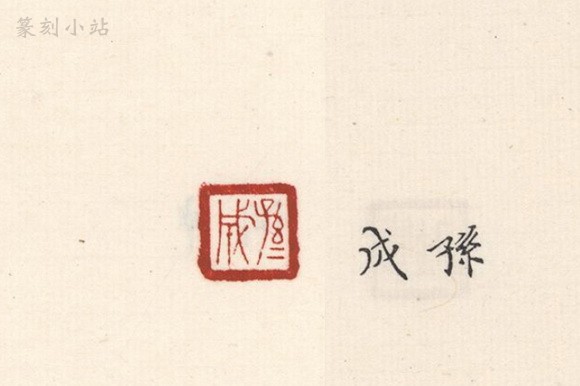 篆刻小站
孫成
孫成